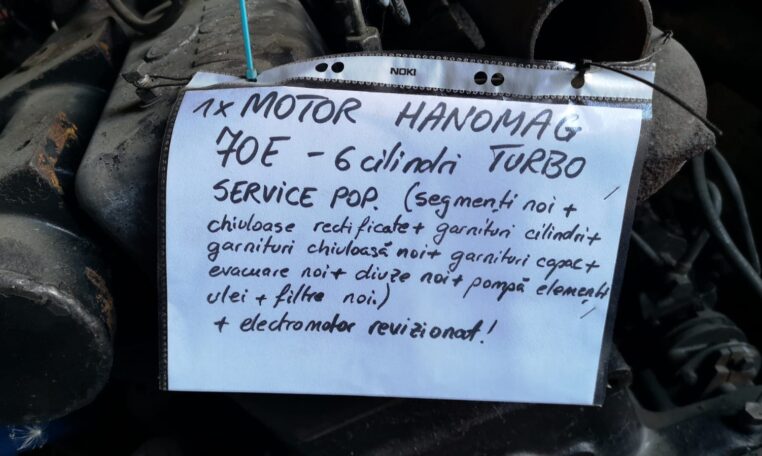 NOKI
1x MOTOR HANOMAG
70E - 6 cilindri TURBO
SERVICE POP. (segmenți noi +
chiuloase rectificate + garnituri cilindri +
garnituri chiuloasă noi + garnituri capac +
evacuare noi + diuze noi + pompă elemenți
ulei + filtre noi.)
+ electromotor revizionat!